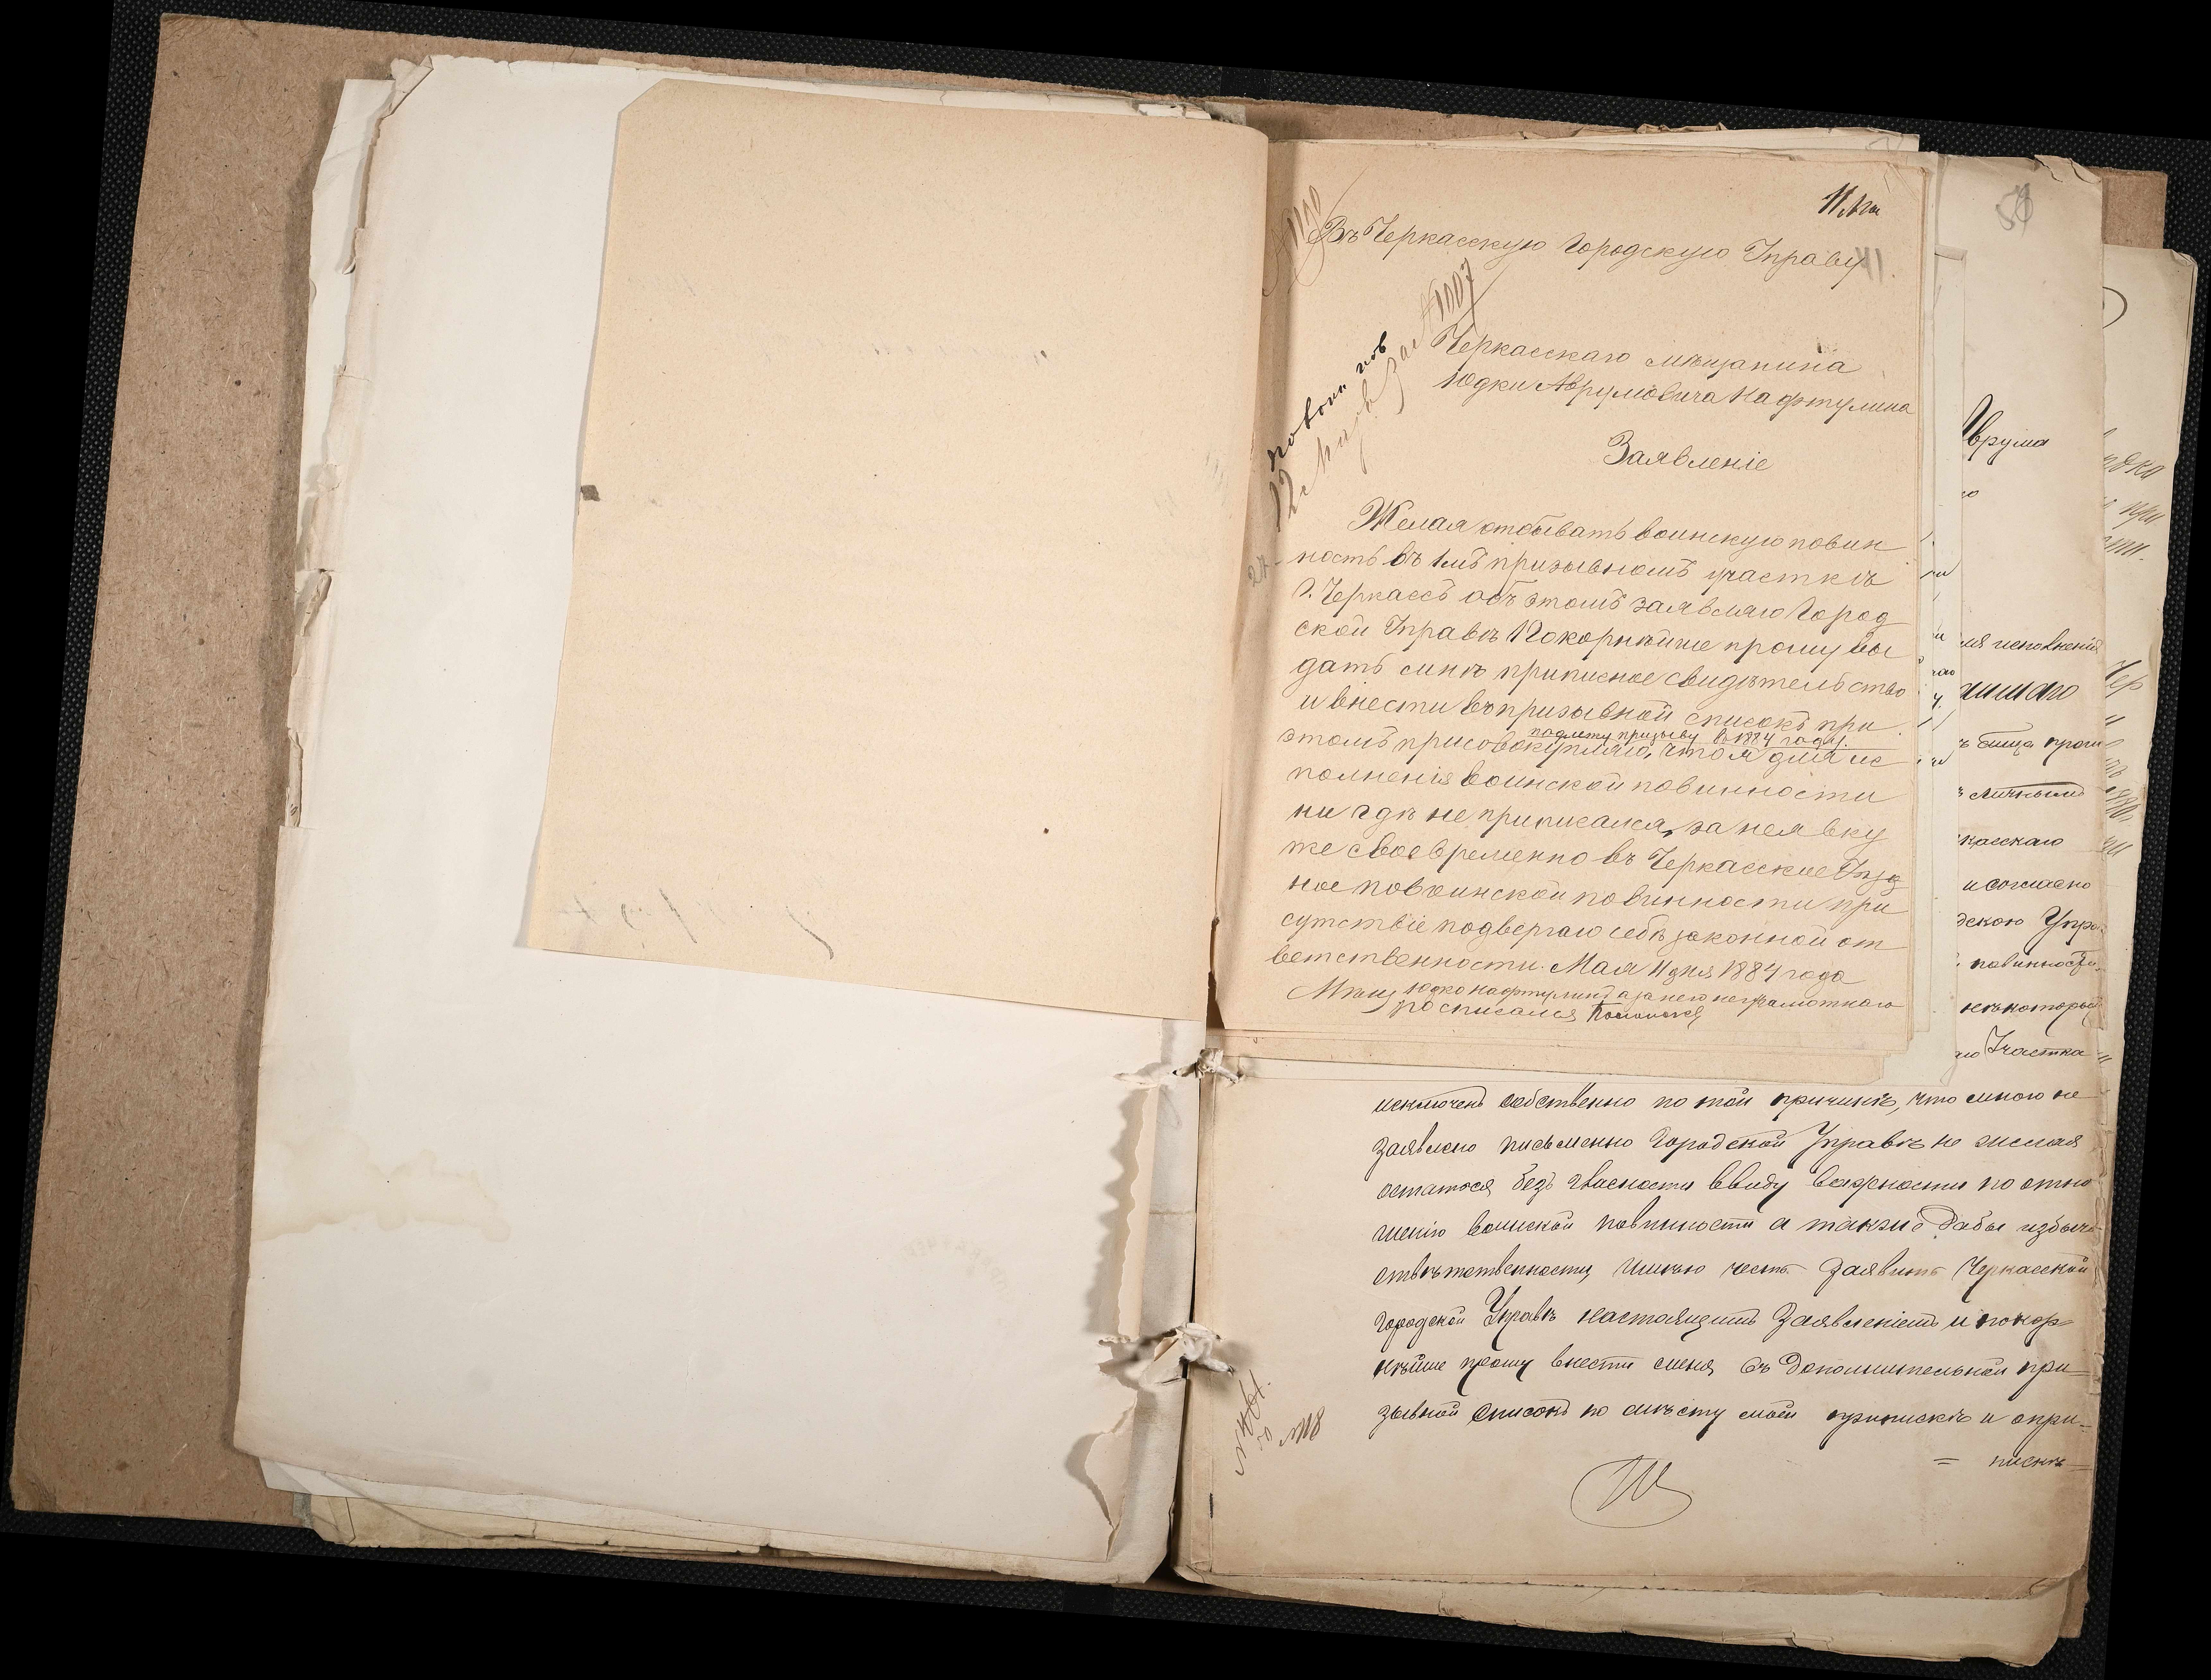 11 Мая
№ 1190
Въ Черкасскую Городскую Управу
№ 1007
Черкасскаго мѣщанина
Юдки Аврумовича Нафтулина
Заявленіе
Желая отбывать воинскую повин
ность въ 1мъ призывномъ участкѣ
г. Черкассъ объ этомъ заявляю Город
ской Управѣ Покорнѣйше прошу вы
дать мнѣ приписное свидѣтельство
и внести въ призывной списокъ при
подлежу призыву въ 1884 году.
этомъ присовокупляю, что я для ис
полненія воинской повинности
ни гдѣ не приписался, за неявку
же своевременно въ Черкасское Уѣзд
ное по воинской повинности при
сутствіе подвергаю себѣ законной от
ветственности. Мая 11 дня 1884 года
Мѣщ Юдко Нафтулинъ а за него неграмотнаго
росписался
59
Аврума
ля исполненія
касскаго
и согласно
дскою Упра
повинности
некоторый
Участка
исключенъ собственно по той причинѣ, что мною не
заявлено письменно Городской Управѣ не желая
остатся безъ гласности ввиду важности по отно
шенію воинской повинности а также дабы избыч
отвѣтственности, имѣю честь заявить Черкасской
городской Управѣ настоящимъ Заявленіемъ и покор=
нѣйше прошу внести меня въ дополнительной при=
зывной списокъ по мѣсту моей прописки и о при=
= пискѣ=
№ 118